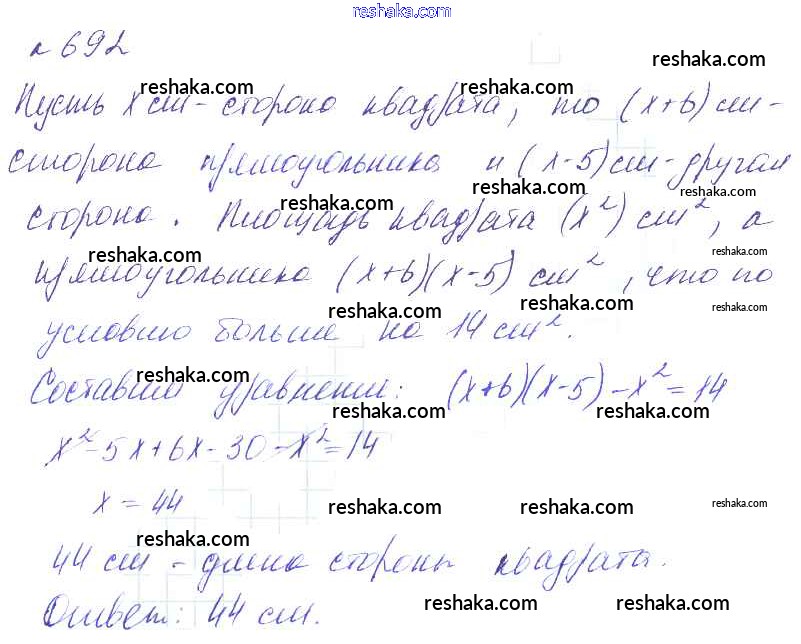 reshaka.com
№ 692
reshaka.com
reshaka.com
reshaka.com
Пусть x см - сторона квадрата, то (x+6) см -
reshaka.com
сторона прямоугольника и (x-5) см - другая
reshaka.com
reshaka.com
reshaka.com
reshaka.com
сторона. Площадь квадрата (x²) см², а
reshaka.com
reshaka.com
прямоугольника (x+6)(x-5) см², что по
reshaka.com
reshaka.com
reshaka.com
условию больше на 14 см².
reshaka.com
Составим уравнение: (x+6)(x-5)-x²=14
reshaka.com
reshaka.com
x²-5x+6x-30-x²=14
x=44
reshaka.com
reshaka.com
reshaka.com
reshaka.com
44 см - длина стороны квадрата.
Ответ: 44 см.
reshaka.com
reshaka.com